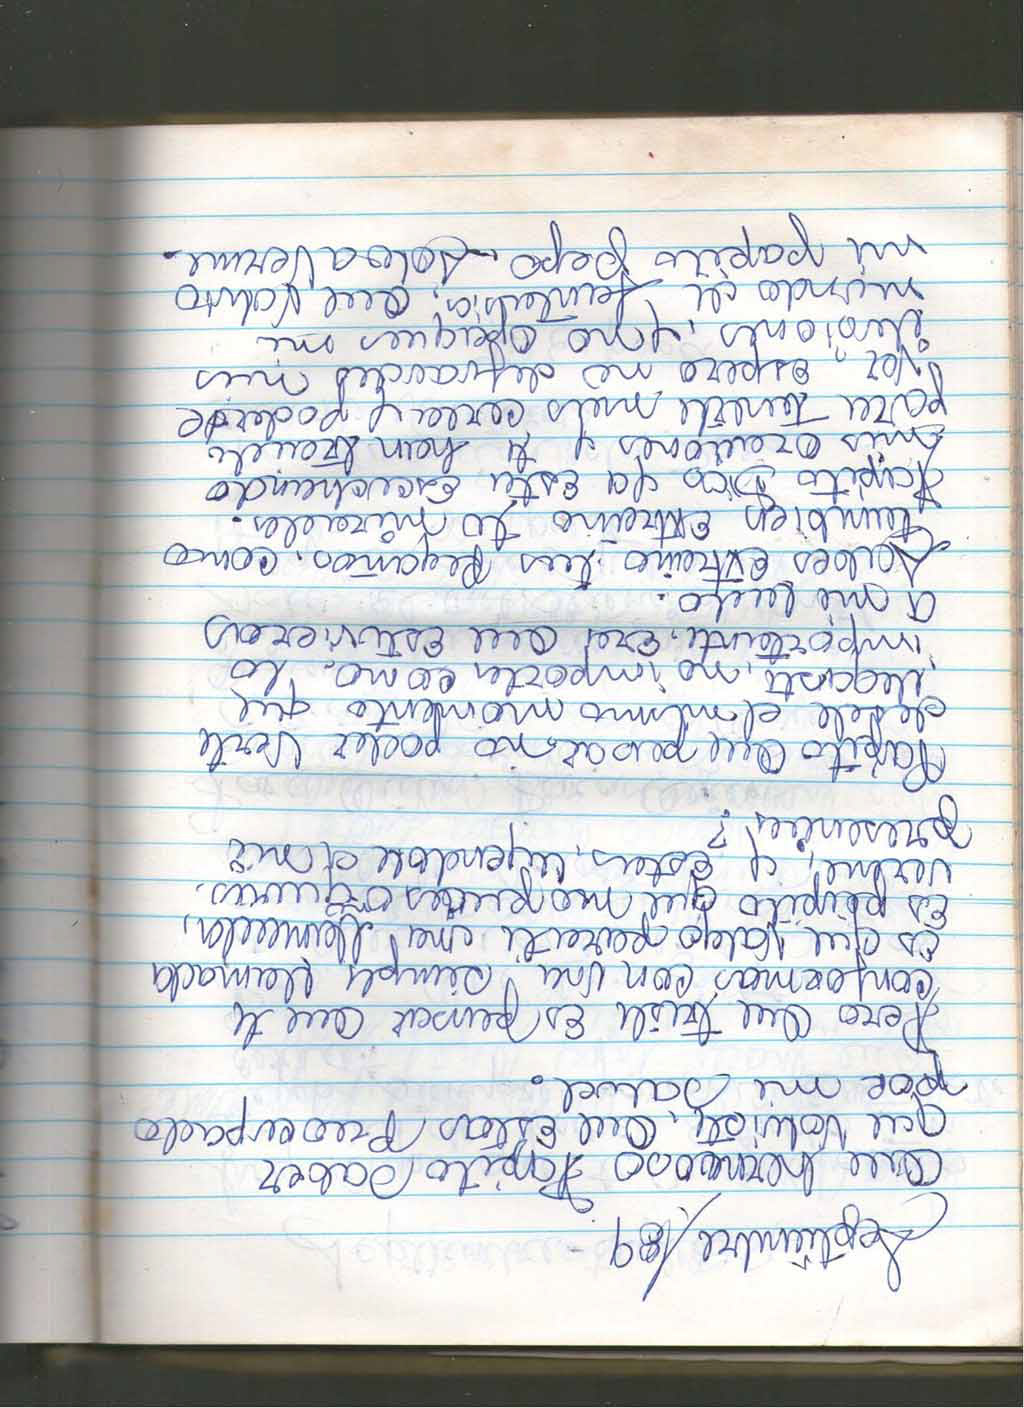 Septiembre/89
Que hermoso Papito Saber
que Volviste, Que Estas Preocupado
por mi Salud.
Pero Que triste Es pensar Que te
conformas con una simple llamada
Es que Valgo para ti una llamada,
Es papito Que me quieres
verme, y Estas,
presencia?
Papito Que pasa no poder Verte
desde el mismo momento que
llegaste, no importa como, Lo
importante, Era Que Estuvieras
a mi lado.
Sabes extraño tus Regaños, como
tambien Extraño tú
Papito Dios ya Esta Escuchando
mis oraciones y te han traido
para tenerte mas cerca y poderte
Ver, espero no defraudes mis
ilusiones, y no opaques mi
mundo de fantasia, Que Volvio
mi papito pepo. Solo a Verme.